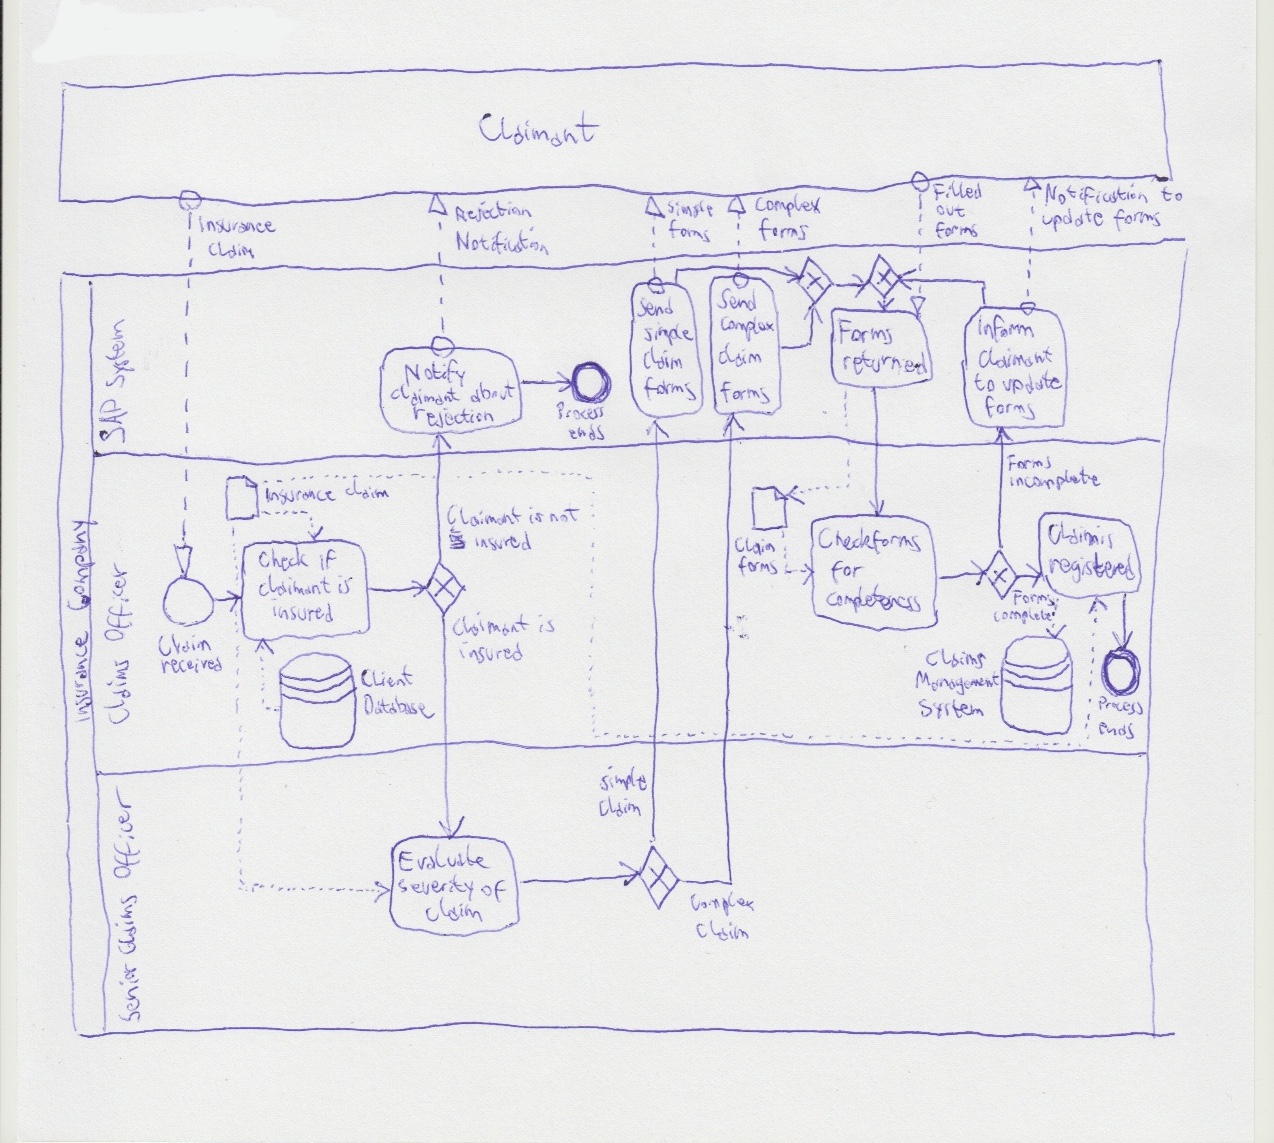 Claimant
Insurance
Claim
Rejection
Notification
Simple
forms
Complex
forms
Filled
out
forms
Notification to
update forms
Insurance Company
SAP System
Notify
claimant about
rejection
Process
ends
Send
simple
claim
forms
Send
complex
claim
forms
Forms
returned
Inform
claimant
to update
forms
Claims Officer
Insurance claim
Claim
received
Check if
claimant is
insured
Client
Database
Claimant is not
insured
Claimant is
insured
Claim
forms
Check forms
for
completeness
Forms
incomplete
Forms
complete
Claim is
registered
Claims
Management
System
Process
ends
Senior Claims Officer
Evaluate
severity of
claim
simple
claim
Complex
claim